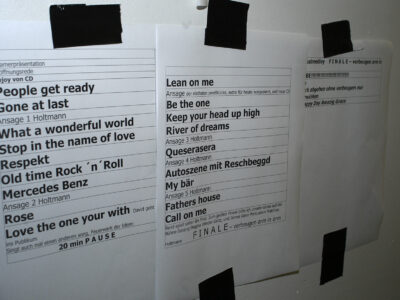 enerpräsentation
öffnungsrede
Enjoy von CD
People get ready
Gone at last
Ansage 1 Holtmann
What a wonderful world
Stop in the name of love
Respekt
Old time Rock ´n´Roll
Mercedes Benz
Ansage 2 Holtmann
Rose
Love the one your with David geht
ins Publikum
20 min P A U S E
Lean on me
Ansage
Be the one
Keep your head up high
River of dreams
Ansage 3 Holtmann
Queserasera
Ansage 4 Holtmann
Autoszene mit Reschbeggd
My bär
Ansage 5 Holtmann
Fathers house
Call on me
Holtmann
F I N A L E – verbeugen arm in arm
F I N A L E – verbeugen arm in
abgehen ohne verbeugen nur